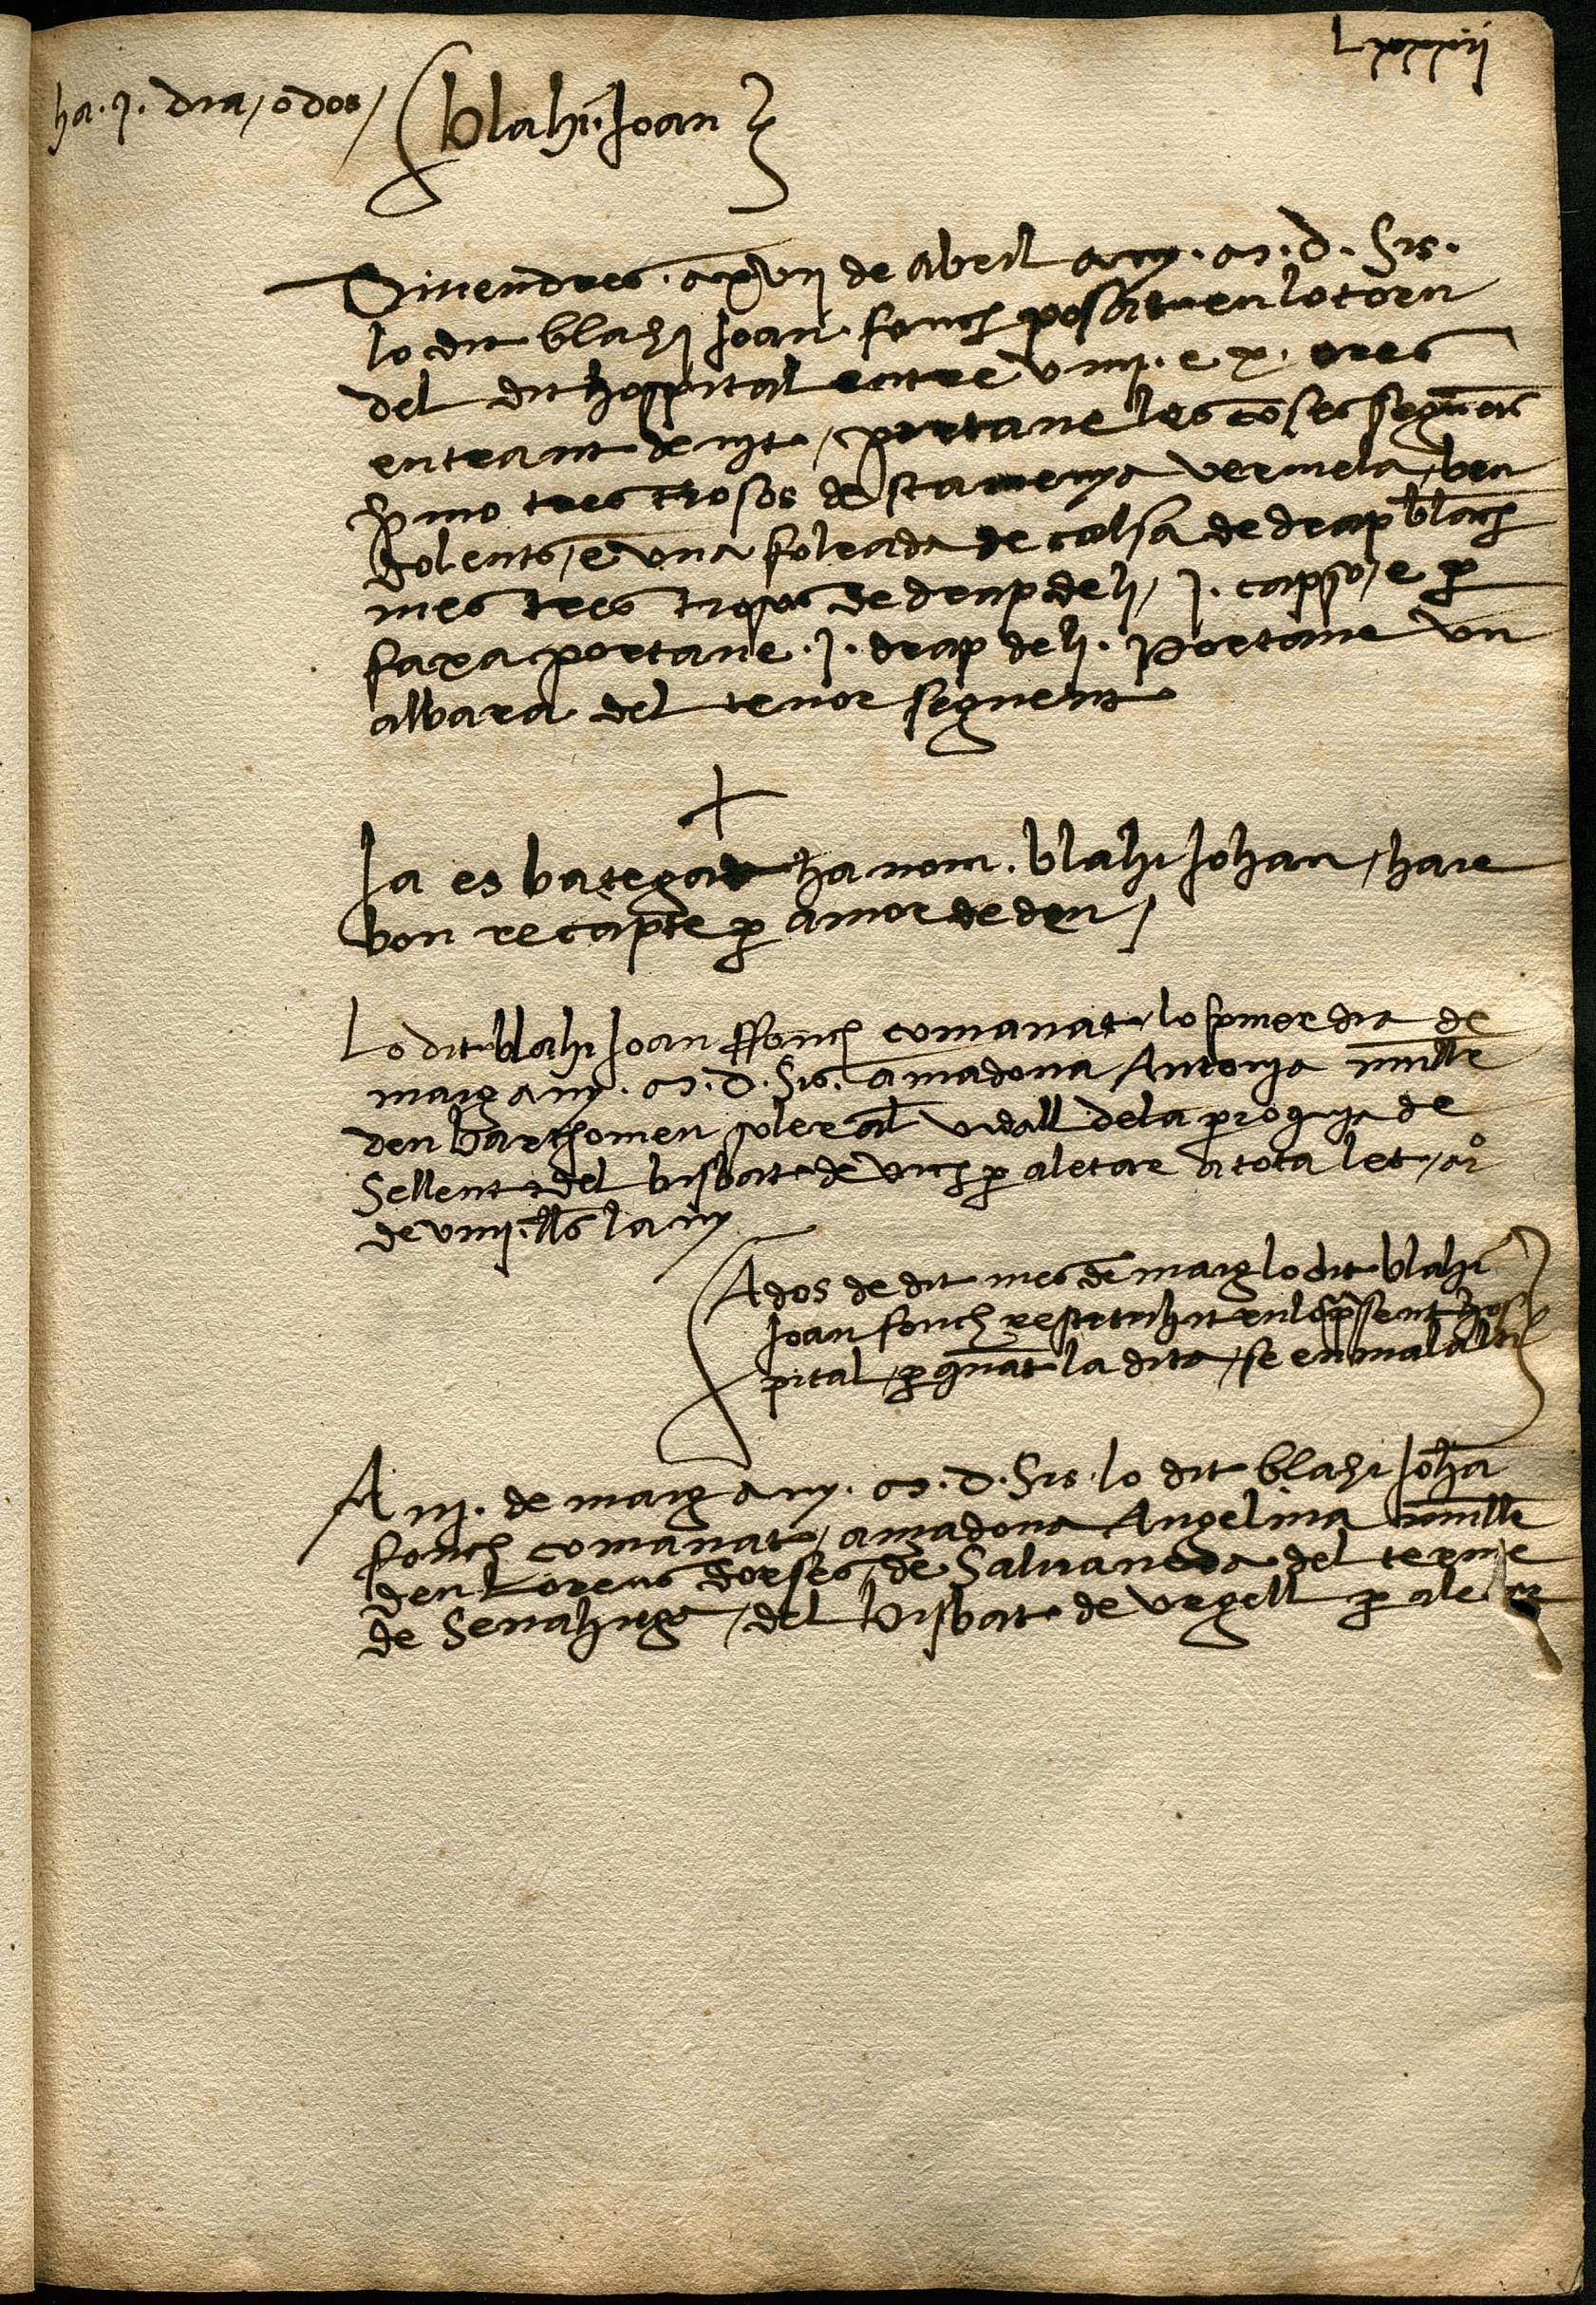 Lxxxvij
ha .j. dia / o dos /
blahi Joan
Divendres a xvij de abril any .M.D. Sis.
lo dit blahi Joan fonch posat en lo torn
del dit hospital entre viiij. e x. ores
entrant de nit / portave les coses seguens
Pmo tres trosos de stamenya vermela ben
dolents / e una folrada de calsa de drap blanch
mes tres trosos de drap de li / j. capso / e p
faxa portave .j. drap de li. Portave un
albara del tenor seguent
+
Ja es bategat ha nom. blahi Johan / haie
bon recapte p amor de deu /
Lo dit blahi Joan ffonch comanat lo pmer dia de
maig any .M.D. Sis. a madona Antonia mull
den barthomeu soler al vidall de la proquia de
Sellent del bisbat de vich p aletar a tota let / a
de viiij. lls lany
A dos de dit mes de maig lo dit blahi
Joan fonch restituhit en lo psent hos
pital / p quat la dita / se enmalalti
A iij. de maig any .M.D. Sis lo dit blahi Joha
fonch comanat / a madona Angelina mull
den Lorens dorses de Salvaneda del terme
de Senahuge / del bisbat de vrgell p ale